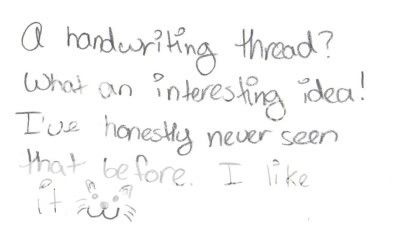 A handwriting thread?
What an interesting idea!
I've honestly never seen
that before. I like
it